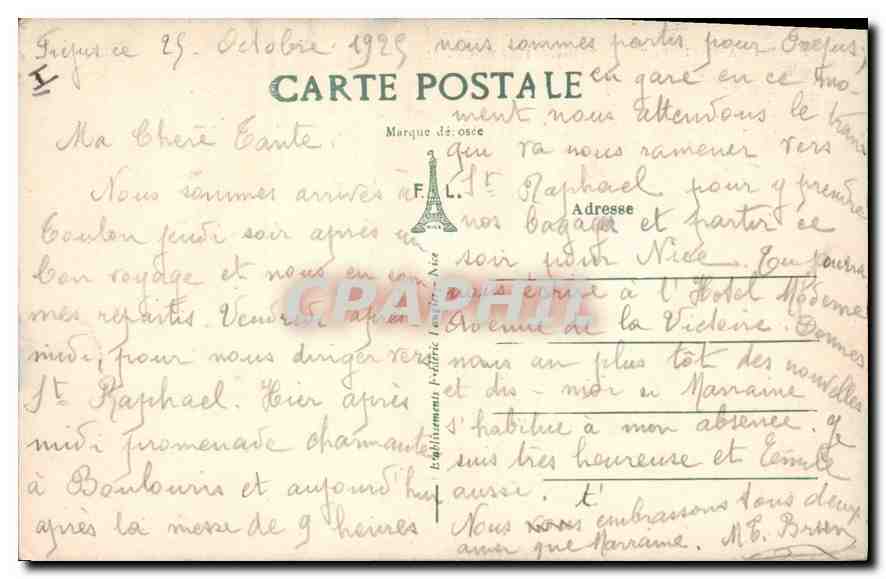 Frejus ce 25 Octobre 1925
I
CARTE POSTALE
Marque déposée
F. L.
NICE
Adresse
Etablissements Frédéric Laugier - Nice
CPAPHIL
Ma Chère Tante.
Nous sommes arrivés à
Toulon jeudi soir après un
bon voyage et nous en som
mes repartis Vendredi après-
midi, pour nous diriger vers
St Raphael. Hier après
midi promenade charmante
à Boulouris et aujourd'hui
après la messe de 9 heures
nous sommes partis pour Frejus,
en gare en ce mo-
ment nous attendons le train
qui va nous ramener vers
St Raphael pour y prendre
nos bagages et partir ce
soir pour Nice. Tu pourra
nous écrire à l'Hotel Moderne
Avenue de la Victoire. Donnes
nous au plus tôt des nouvelles
et dis-moi si Marraine
s'habitue à mon absence. Je
suis très heureuse et Emile
aussi. t'
Nous embrassons tous deux
ainsi que Marraine. M.E.